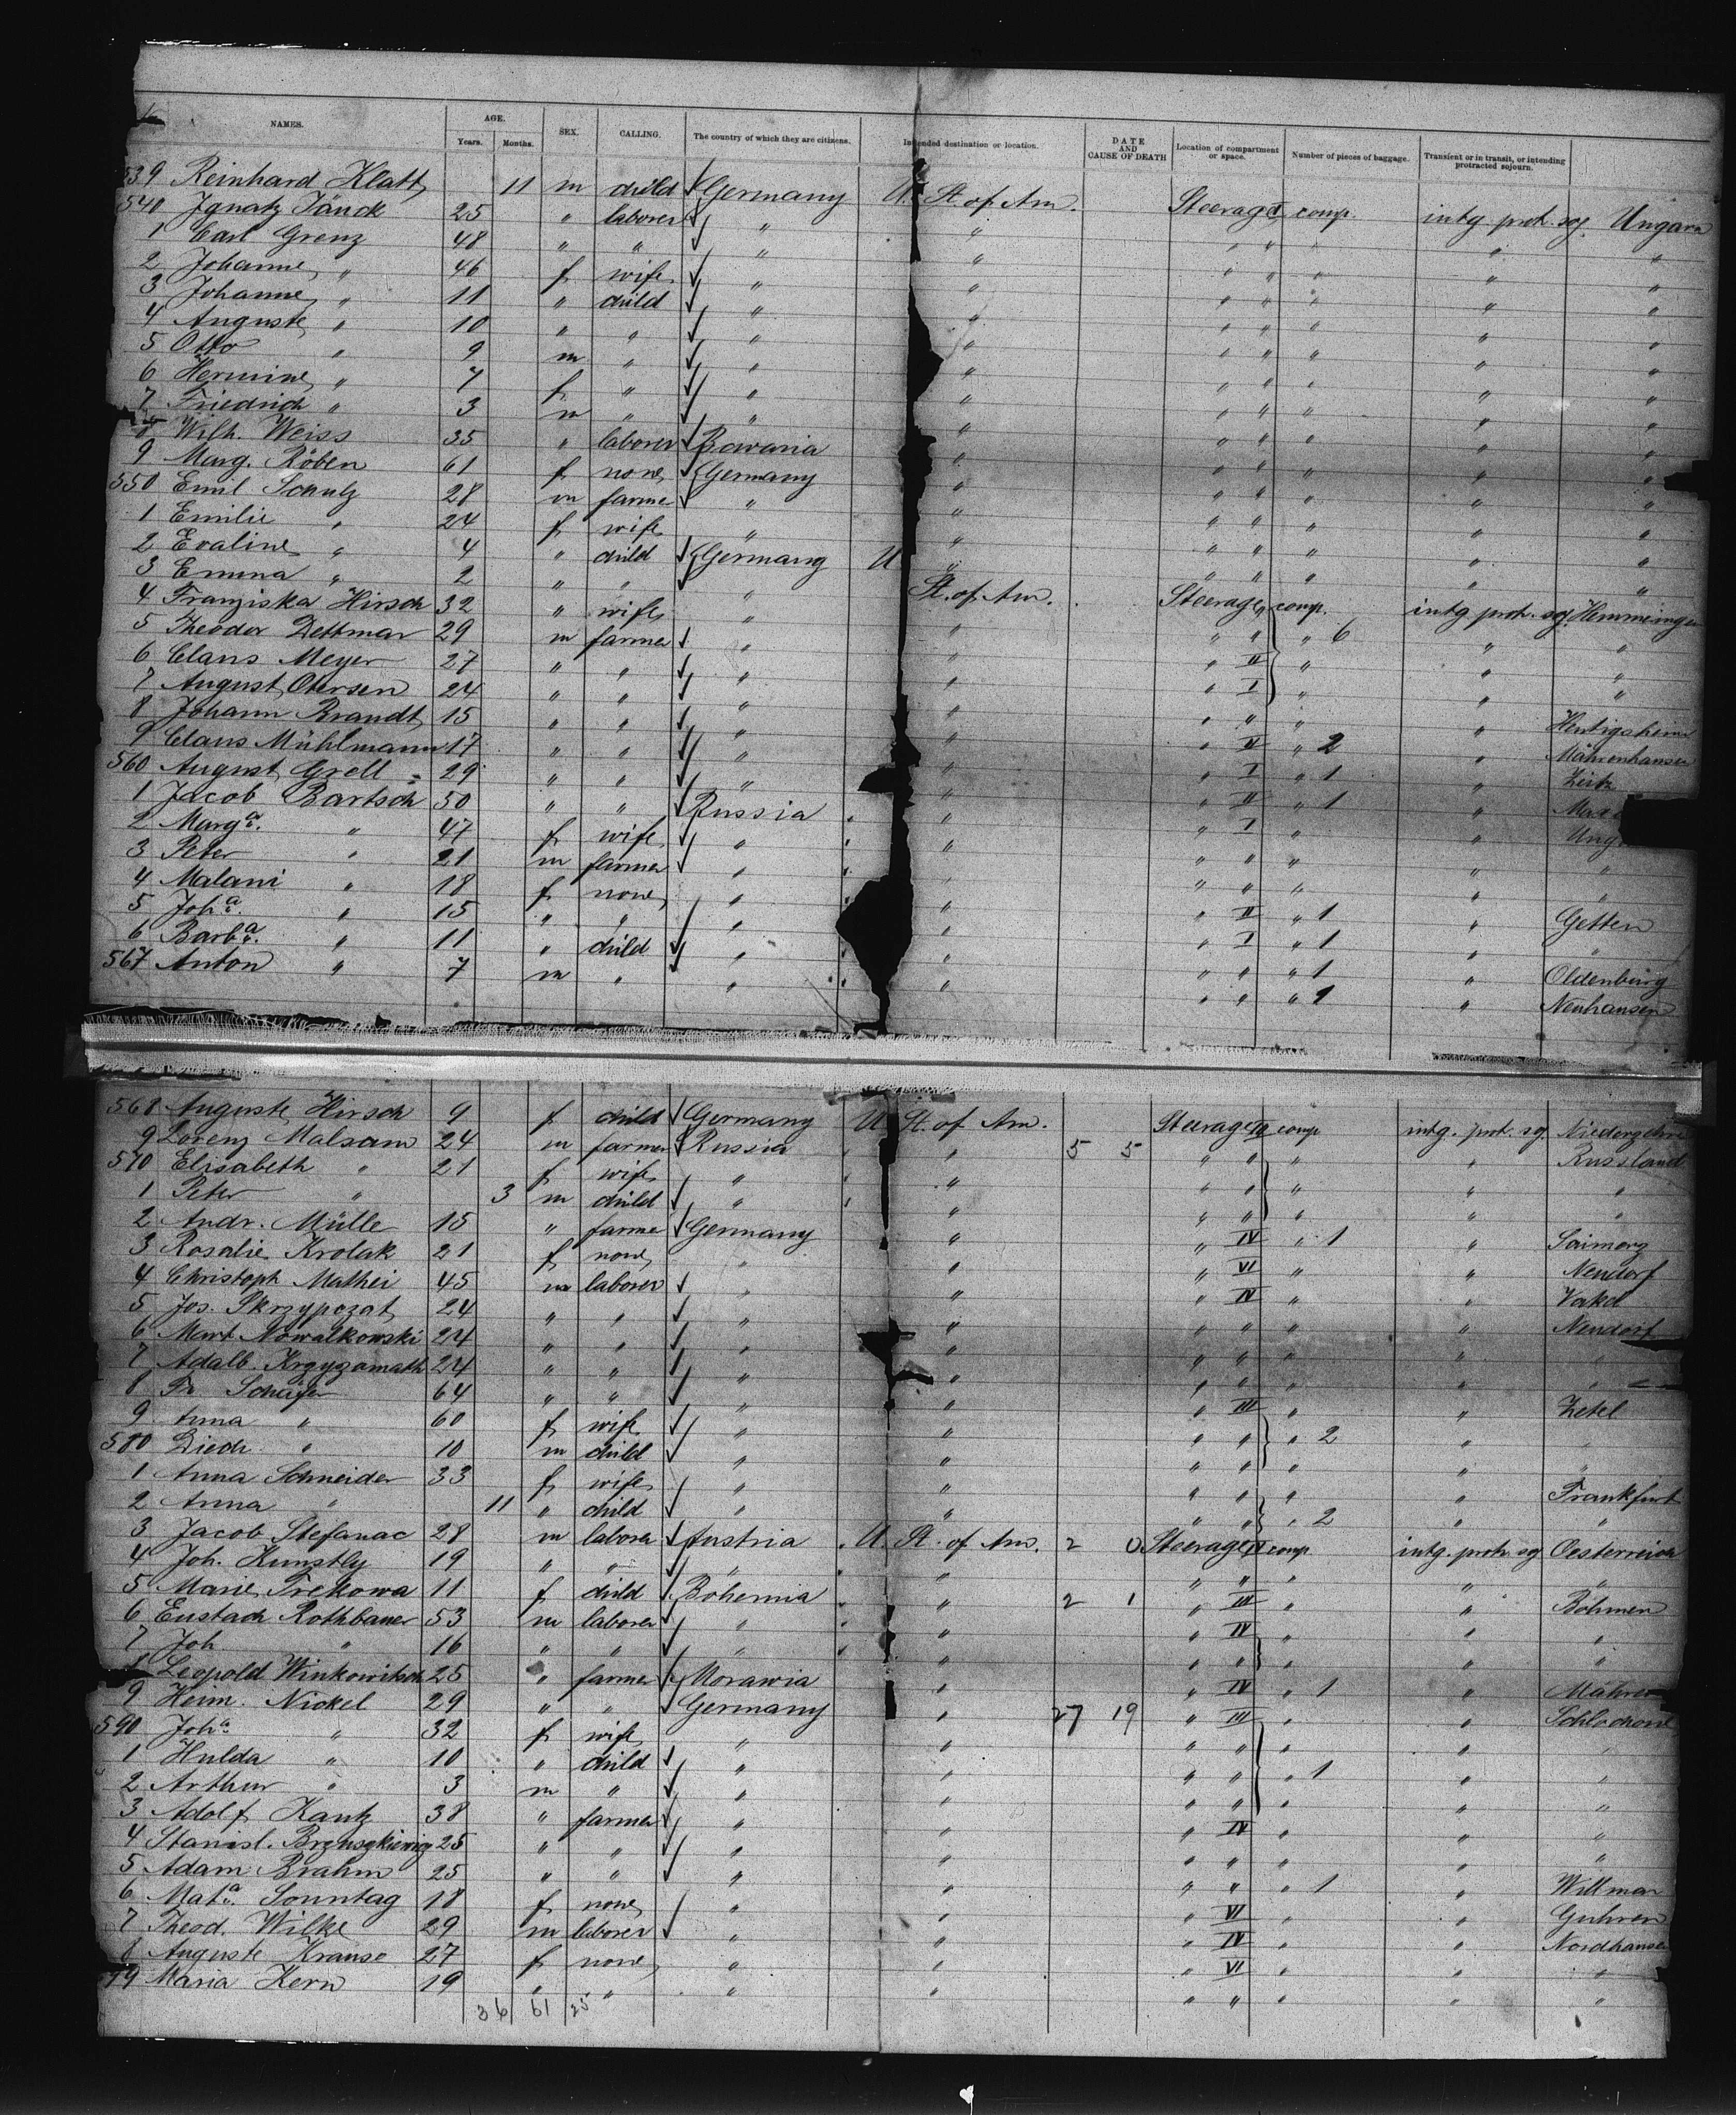 NAMES. AGE. SEX. CALLING. The country of which they are citizens. Intended destination or location. DATE AND CAUSE OF DEATH Location of compartment or space. Number of pieces of baggage. Transient or in transit, or intending protracted sojourn.
Years. Months.
539 Reinhard Klatt 11 m child Germany U. St. of Am. Steerage comp. intg prot. soj. Ungarn
540 Ignatz Jänck 25 " laborer " " " " " "
1 Carl Grenz 48 " " " " " " " " "
2 Johanne " 46 f wife " " " " " " "
3 Johanne " 11 " child " " " " " " "
4 Auguste " 10 " " " " " " " " "
5 Otto " 9 m " " " " " " " "
6 Hermine " 7 f " " " " " " " "
7 Friedrich " 3 m " " " " " " " "
8 Wilh. Weiss 35 " laborer Bawaria " " " " " "
9 Marg. Röben 61 f none Germany " " " " " "
550 Emil Schulz 28 m farmer " " " " " " "
1 Emilie " 24 f wife " " " " " " "
2 Evaline " 4 " child Germany U " " " " " "
3 Emma " 2 " " " St. of Am. Steerage comp. intg prot. soj. Hemmingen
4 Franziska Hirsch 32 " wife " " " " " 6 " "
5 Theodor Dettmar 29 m farmer " " " II " " "
6 Claus Meyer 27 " " " " " I " " "
7 August Otersen 24 " " " " " " " "
8 Johann Brandt 15 " " " " " II " 2 "
9 Claus Mühlmann 17 " " " " " I " 1 " Zeitz
560 August Grell 29 " " " " " II " 1 "
1 Jacob Bartsch 50 " " Russia " " I " "
2 Marga. " 47 f wife " " " " " "
3 Peter " 21 m farmer " " " " " " "
4 Malani " 18 f none " " " II " 1 " Getten
5 Joha. " 15 " " " " " I " 1 " "
6 Barba. " 11 " child " " " " " 1 " Oldenburg
567 Anton " 7 m " " " " " " 1 " Neuhausen
568 Auguste Hirsch 9 f child Germany U. St. of Am. Steerage comp intg. prot. soj.
9 Lorenz Malsam 24 m farmer Russia " 5 5 " " " " Russland
570 Elisabeth " 21 f wife " " " " " " "
1 Peter " 3 m child " " " " " " "
2 Andr. Müller 15 " farmer Germany " " IV " 1 "
3 Rosalie Krolak 21 f none " " " VI " " Neudorf
4 Christoph Mathei 45 m laborer " " " IV " "
5 Jos. Skrzypczat 24 " " " " " " " " Neudorf
6 Mart. Nowalkowski 24 " " " " " " " " "
7 Adalb. 24 " " " " " " " " "
8 Fr. Schäfer 64 " " " " " III " " Zetel
9 Anna " 60 f wife " " " " " 2 " "
580 Diedr. " 10 m child " " " " " " "
1 Anna Schneider 33 f wife " " " " " " Frankfurt
2 Anna " 11 " child " " " " " 2 " "
3 Jacob Stefanac 28 m laborer Austria U. St. of Am. 2 0 Steerage comp intg. prot. soj Oesterreich
4 Joh. Kunstly 19 " " " " " " " " "
5 Marie Trekowa 11 f child Bohemia " 2 1 " III " " Böhmen
6 Eustach Rothbauer 53 m laborer " " " IV " " "
7 Joh. " 16 " " " " " " " " "
8 Leopold Winkowitsch 25 " farmer Morawia " " IV " 1 " Mähren
9 Heinr. Nickel 29 " " Germany " 27 19 " III " "
590 Joha. " 32 f wife " " " " " " "
1 Hulda " 10 " child " " " " " 1 " "
2 Arthur " 3 m " " " " " " " "
3 Adolf Kantz 38 " farmer " " " IV " " "
4 Stanisl. 25 " " " " " " " " "
5 Adam Brahm 25 " " " " " " " 1 " Willmar
6 Mata. Sonntag 18 f none " " " VI " " Guhren
7 Theod. Wilke 29 m laborer " " " IV " " Nordhausen
8 Auguste Krause 27 f none " " " VI " " "
99 Maria Kern 19 " " " " " " " " "
36 61 25